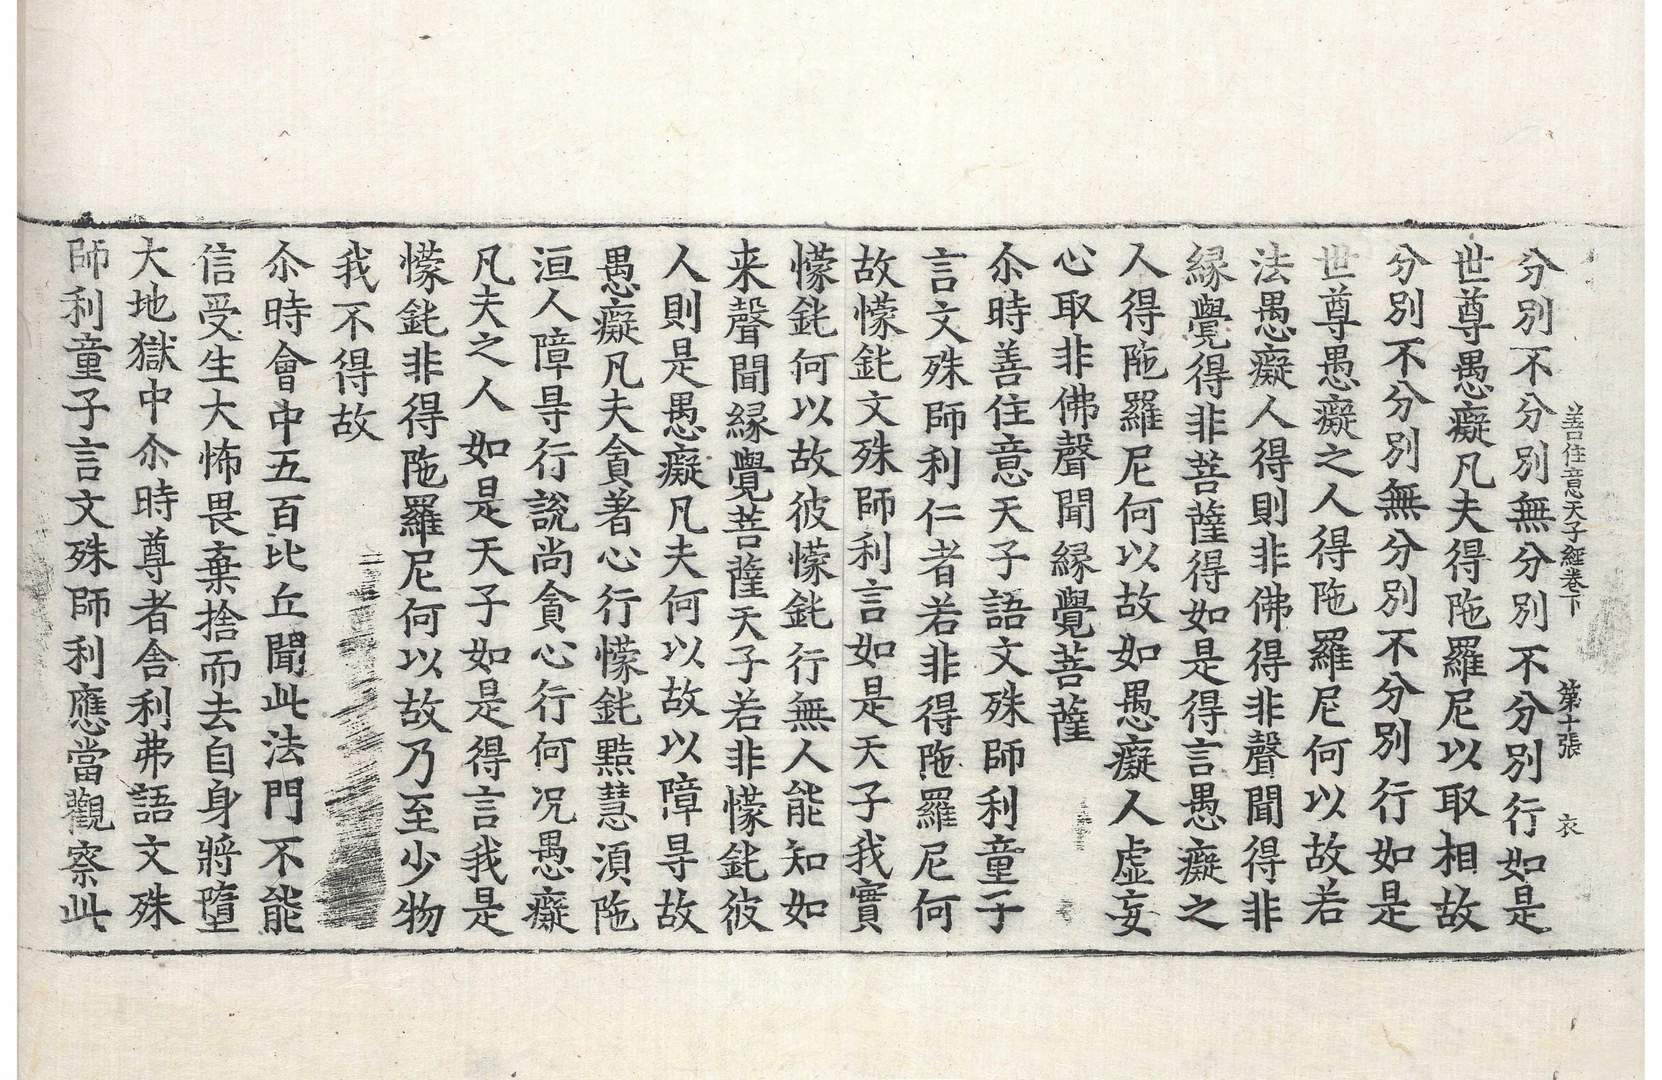 善住意天子經卷下 第十張 衣
分別不分別無分別不分別行如是
世尊愚癡凡夫得陁羅尼以取相故
分別不分別無分別不分別行如是
世尊愚癡之人得陁羅尼何以故若
法愚癡人得則非佛得非聲聞得非
緣覺得非菩薩得如是得言愚癡之
人得陁羅尼何以故如愚癡人虛妄
心取非佛聲聞緣覺菩薩
尒時善住意天子語文殊師利童子
言文殊師利仁者若非得陁羅尼何
故懞鈍文殊師利言如是天子我實
懞鈍何以故彼懞鈍行無人能知如
来聲聞緣覺菩薩天子若非懞鈍彼
人則是愚癡凡夫何以故以障㝵故
愚癡凡夫貪著心行懞鈍黠慧湏陁
洹人障㝵行說尚貪心行何況愚癡
凡夫之人如是天子如是得言我是
懞鈍非得陁羅尼何以故乃至少物
我不得故
尒時會中五百比丘聞此法門不能
信受生大怖畏棄捨而去自身將墮
大地獄中尒時尊者舍利弗語文殊
師利童子言文殊師利應當觀察此